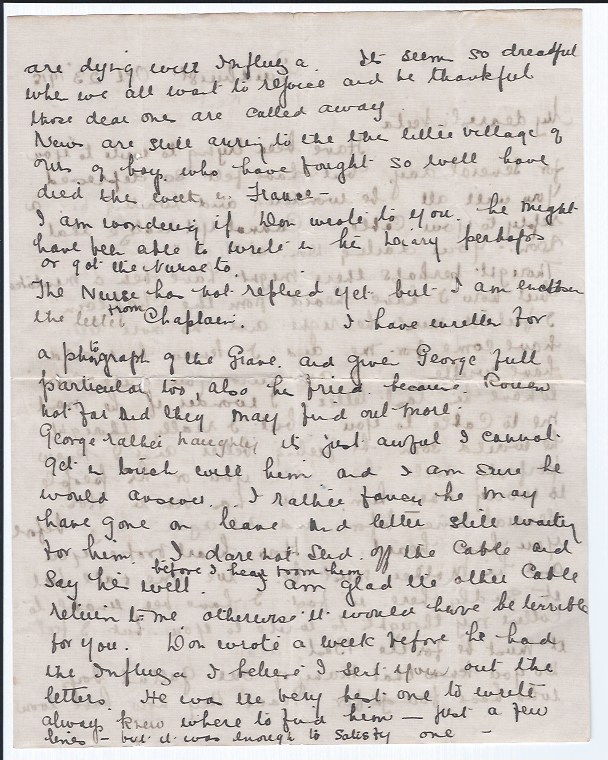 are dying with Influza. It seem so dreadful
when we all want to rejoice and be thankful
those dear ones are called away
News are still coming to the the little village of
ours of boys who have fought so well have
died this week in France –
I am wondering if Don wrote to you. he might
have been able to write in his Diary perhaps
or got the Nurse to.
The Nurse has not replied yet but I am enclose
the letter from Chaplain. I have written for
a photograph of the Grave. and given George full
particular too, also his fried because Rouen
not far and they may find out more.
George rather naughty it just awful I cannot
get in touch with him and I am sure he
would answer. I rather fancy he may
have gone on leave and letter still waiting
for him. I dare not send off the Cable and
say he well. before I hear from him I am glad the other Cable
return to me otherwise it would have be terrible
for you. Don wrote a week before he had
the Influza I believe I sent you out the
letters. He was the very best one to write
always knew where to find him – just a few
lines – but it was enough to satisfy one –